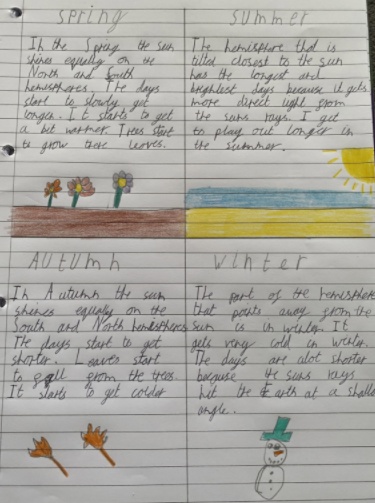 Spring
In the Spring the sun
shines equally on the
North and South
hemispheres. The days
start to slowly get
longer. It starts to get
a bit warmer. Trees start
to grow there leaves.
Summer
The hemisphere that is
tilted closest to the sun
has the longest and
brightest days because it gets
more direct light from
the suns rays. I get
to play out longer in
the summer.
Autumn
In Autumn the sun
shines equally on the
South and North hemispheres
The days start to get
shorter. Leaves start
to fall from the trees.
It starts to get colder
Winter
The part of the hemisphere
that points away from the
sun is in winter. It
gets very cold in winter.
The days are alot shorter
because the suns rays
hit the Earth at a shallo
angle.